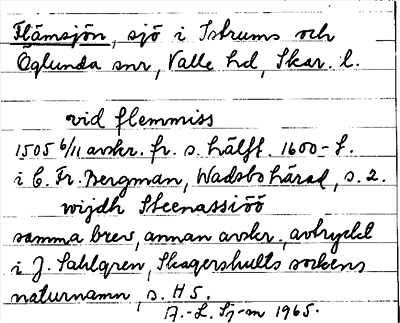 Flämsjön, sjö i Istrums och
Öglunda snr, Valle hd, Skar. l.
vid flemmiss
1505 6/11 avskr. fr. s. hälft. 1600-t.
i C. Fr. Bergman, Wadsbo härad, s. 2.
wijdh Steenassiöö
samma brev, annan avskr., avtryckt
i J. Sahlgren, Skagershults sockens
naturnamn, s. H5.
A.-L. Sj-m 1965.